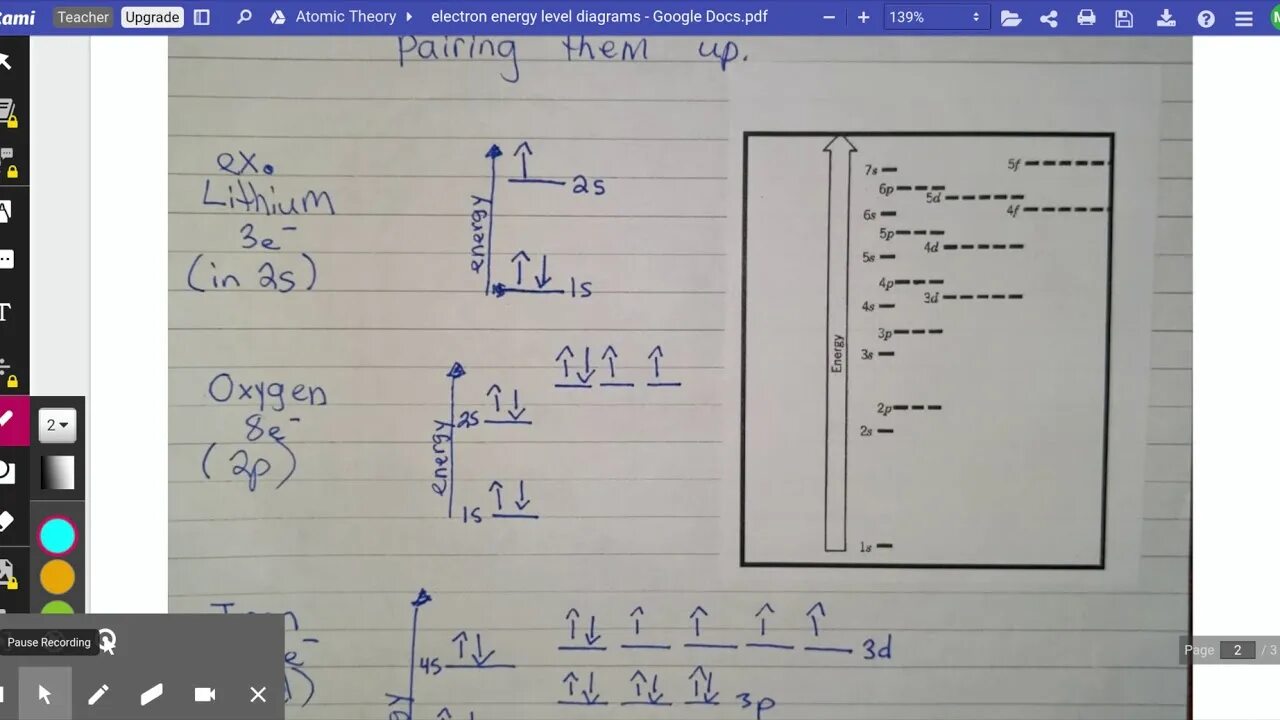 Teacher
Upgrade
Atomic Theory
electron energy level diagrams - Google Docs.pdf
139%
Pairing them up.
ex.
Lithium
3e⁻
(in 2s)
energy
↑ 2s
↑↓ 1s
Oxygen
8e⁻
(2p)
energy
↑↓ ↑ ↑
2s ↑↓
1s ↑↓
4s ↑↓
↑↓ ↑ ↑ ↑ ↑ 3d
↑↓ ↑↓ ↑↓ 3p
Energy
7s
5f
6p
5d
6s
4f
5p
4d
5s
4p
3d
4s
3p
3s
2p
2s
1s
2
Pause Recording
Page 2 / 3